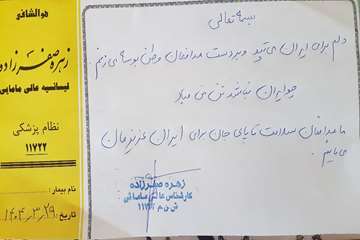 هوالشافی
زهره صفرزاده
لیسانسیه عالی مامایی
نظام پزشکی
۱۱۷۲۲
نام بیمار:
تاریخ: ۱۴۰۴،۳،۲۹
بسمه تعالی
دلم برای ایران می‌تپد و بر دست مدافعان وطن بوسه می‌زنم.
چو ایران نباشد تن من مباد
ما مدافعان سلامت تا پای جان برای ایران عزیزمان
می‌مانیم.
زهره صفرزاده
کارشناس عالی مامائی
ش ن م ۱۱۷۲۲